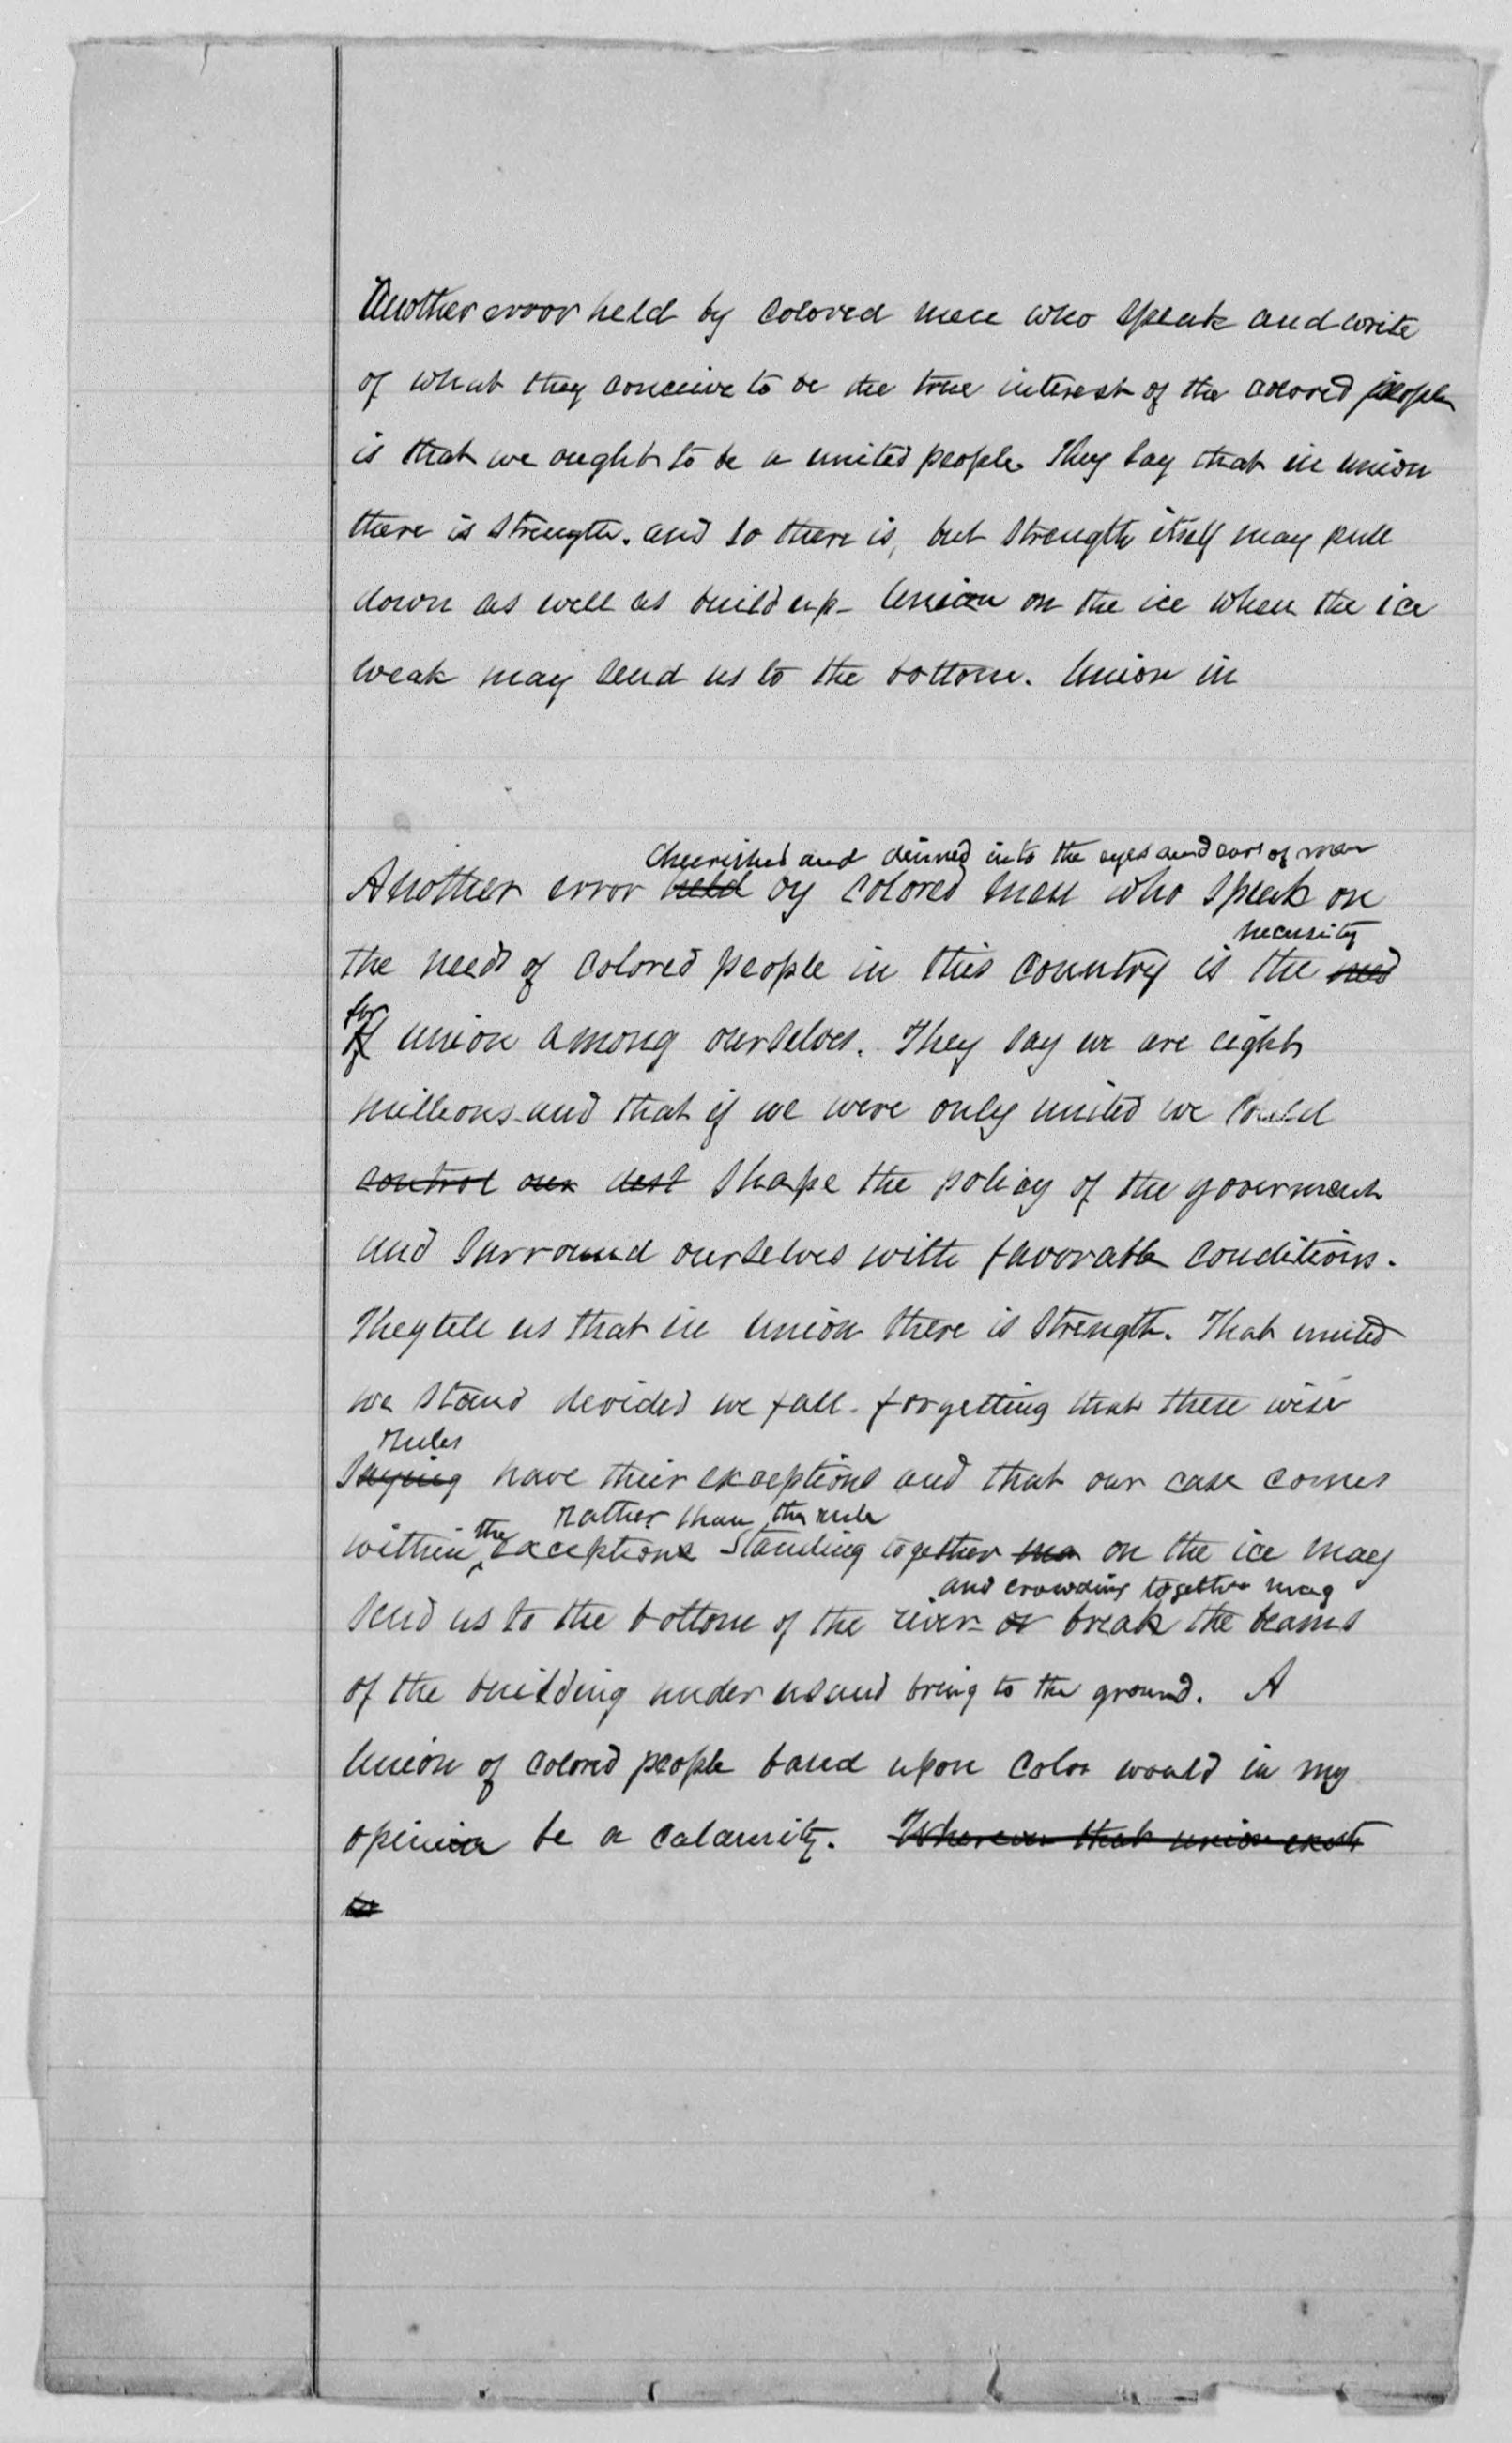 Another error held by colored men who speak and write
of what they conceive to be the true interest of the colored people
is that we ought to be a united people. They say that in union
there is strength. and so there is, but strength itself may pull
down as well as build up - Union on the ice when the ice
weak may send us to the bottom. Union in
cherished and dinned into the eyes and ears of men
Another error held by colored men who speak on
necessity
the needs of colored people in this country is the need
for
of union among ourselves. They say we are eight
millions and that if we were only united we could
control our dest shape the policy of the government
and surround ourselves with favorable conditions.
They tell us that in union there is strength. That united
we stand devided we fall. forgetting that these wise
rules
saying have their exceptions and that our case comes
the rather than the rule
within exceptions Standing together on the ice may
and crowding together may
send us to the bottom of the river - or break the beams
of the building under us and bring to the ground. A
Union of colored people based upon color would in my
opinion be a calamity. Wherever that union exists